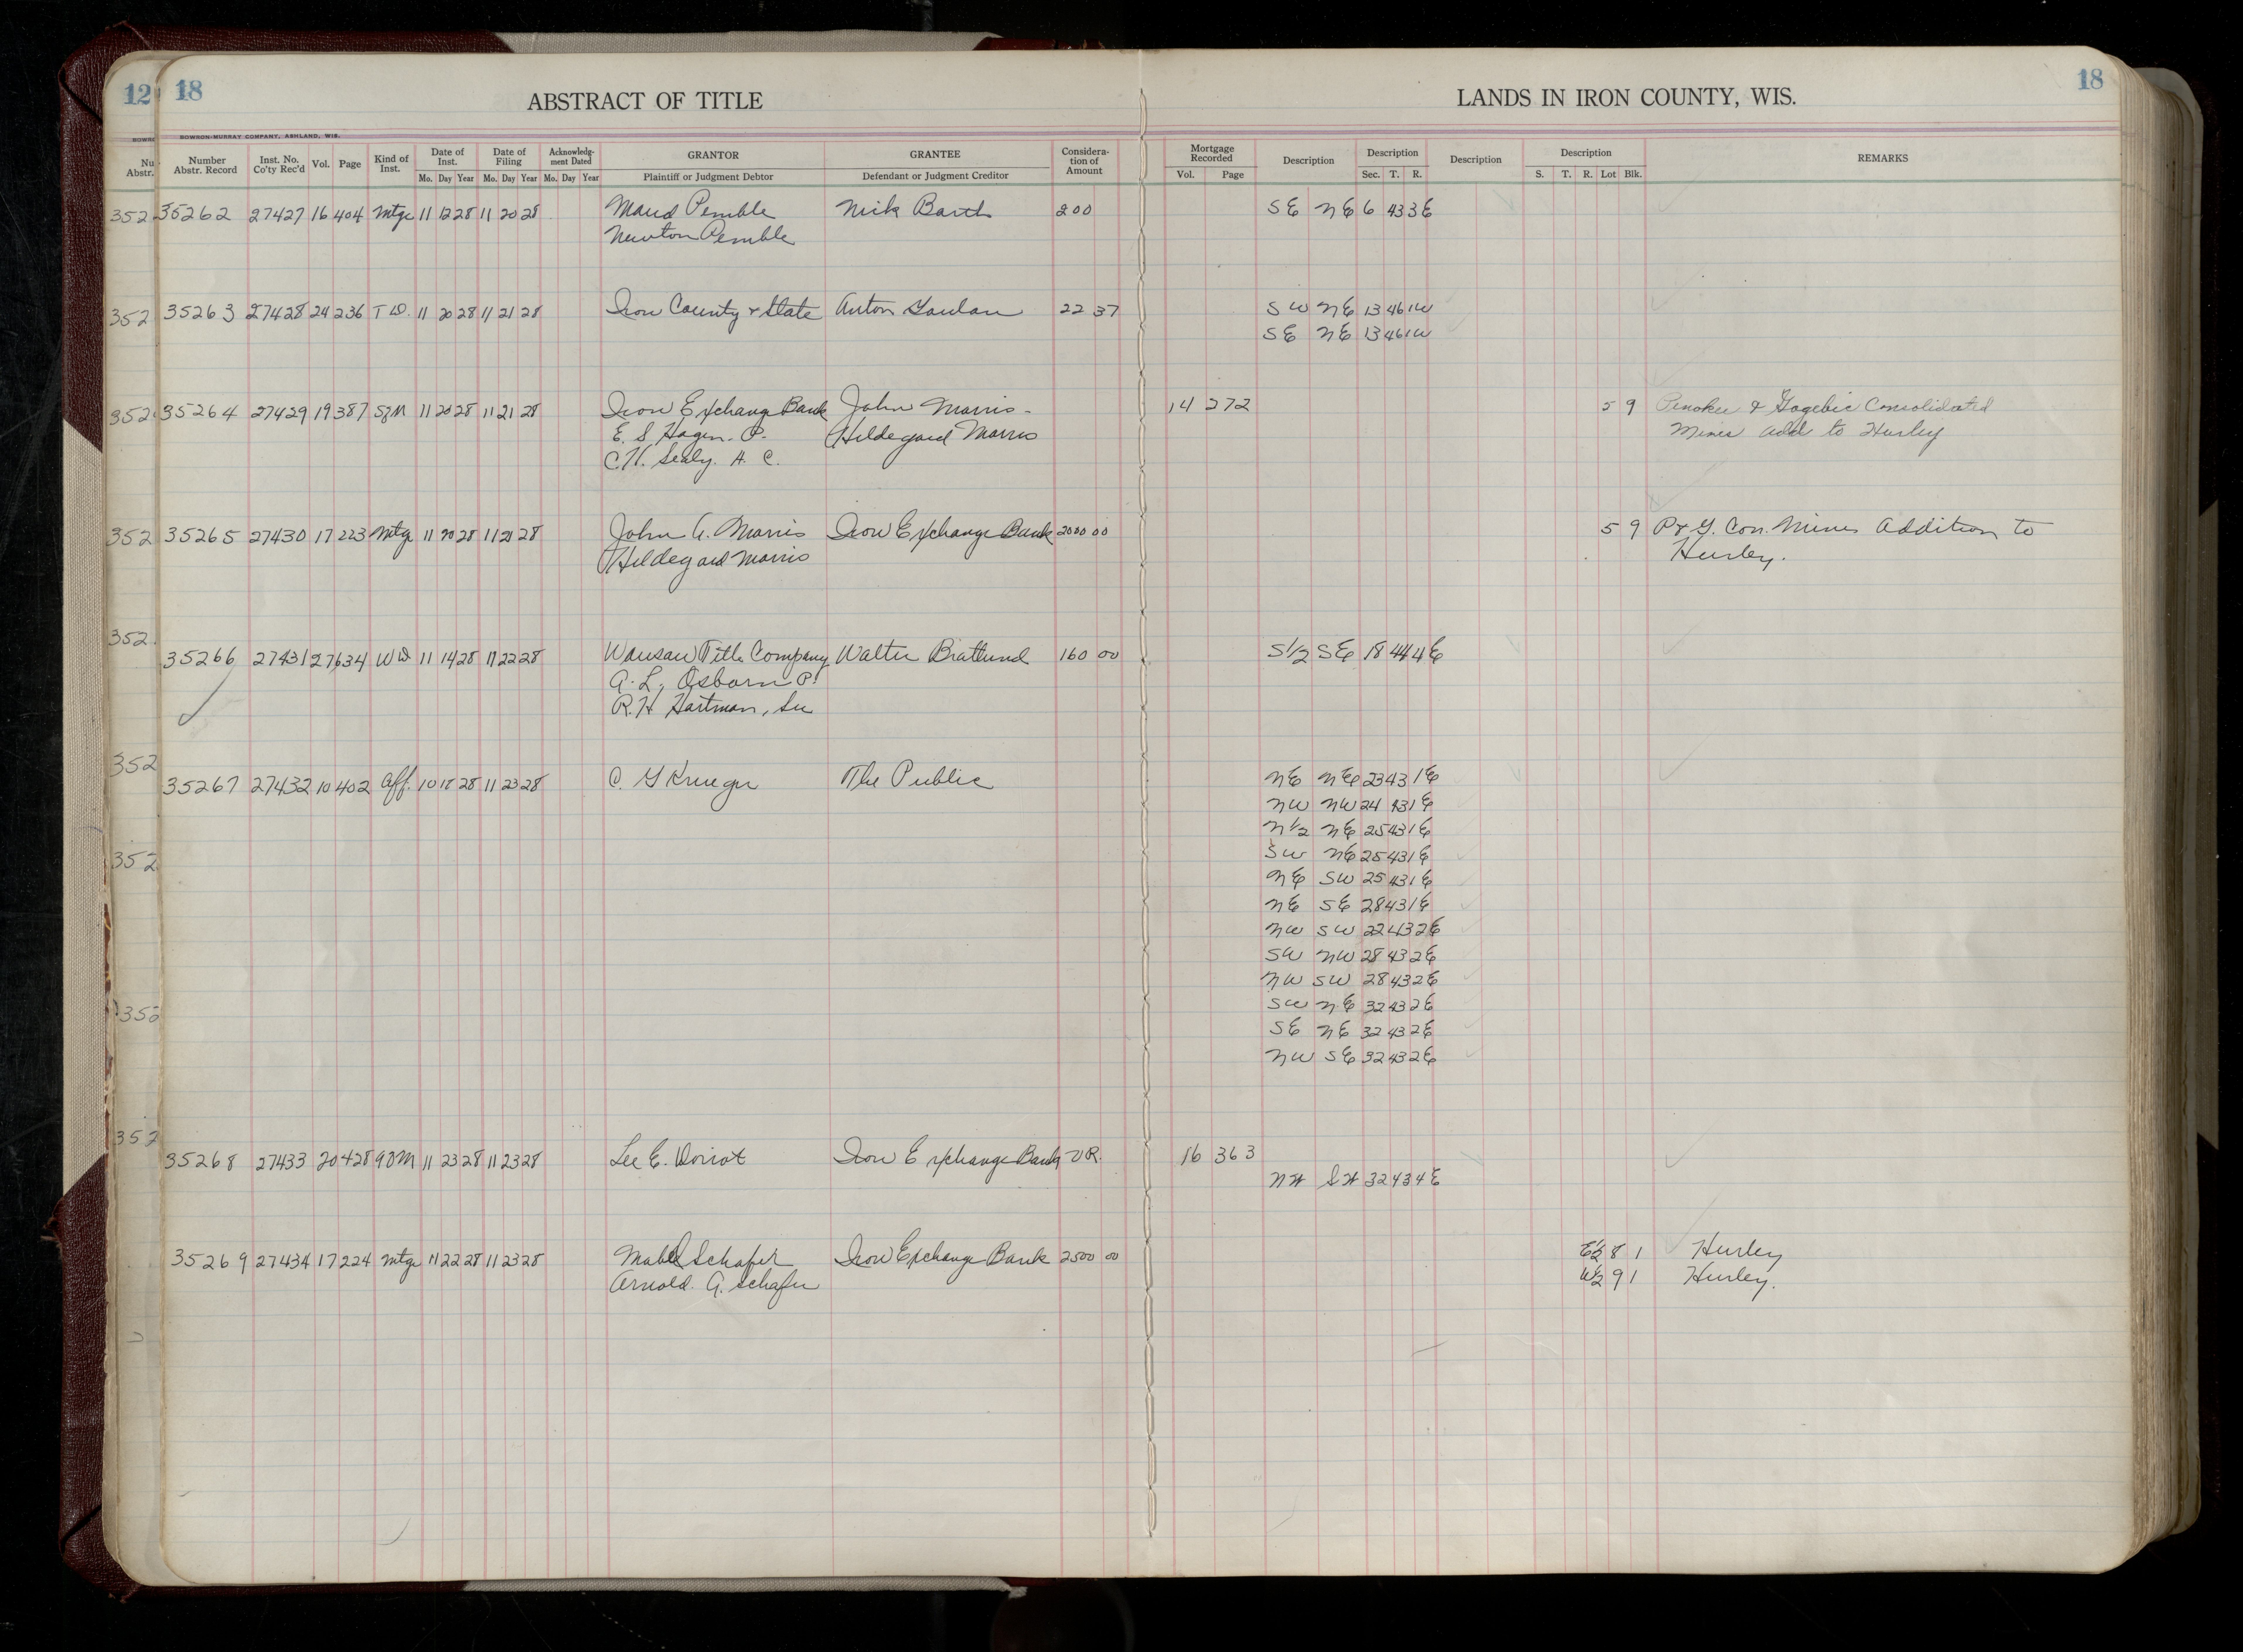 12 18 ABSTRACT OF TITLE LANDS IN IRON COUNTY, WIS. 18
BOWRON-MURRAY COMPANY, ASHLAND, WIS.
Number Abstr. Record Inst. No. Co'ty Rec'd Vol. Page Kind of Inst. Date of Inst. Date of Filing Acknowledg-ment Dated GRANTOR GRANTEE Considera-tion of Amount Mortgage Recorded Description Description Description Description REMARKS
Mo. Day Year Mo. Day Year Mo. Day Year Plaintiff or Judgment Debtor Defendant or Judgment Creditor Vol. Page Sec. T. R. S. T. R. Lot Blk.
35262 27427 16 404 Mtge 11 12 28 11 20 28 Maud Pemble Nick Barth 200 SE NE 6 43 3E
Newton Pemble
35263 27428 24 236 T D. 11 20 28 11 21 28 Iron County & State Anton 22 37 SW NE 13 46 1W
SE NE 13 46 1W
35264 27429 19 387 11 20 28 11 21 28 Iron Exchange Bank John Morris - 14 272 5 9 Penokee & Gogebic Consolidated
E. S. Hagen. P. Hildegard Morris Mines Add to Hurley
C.H. Sealy. A. C.
35265 27430 17 223 Mtge 11 20 28 11 21 28 John A. Morris Iron Exchange Bank 2000 00 5 9 P & G. Con. Mines Addition to
Hildegard Morris Hurley.
35266 27431 27 634 WD 11 14 28 11 22 28 Wausau Title Company Walter Bratlund 160 00 S1/2 SE 18 44 4E
A. L. Osborn P.
R. H Hartman, Sec
35267 27432 10 402 Aff. 10 18 28 11 23 28 C. G Krueger The Public NE NE 23 43 1E
NW NW 24 43 1E
N1/2 NE 25 43 1E
SW NE 25 43 1E
NE SW 25 43 1E
NE SE 28 43 1E
NW SW 22 43 2E
SW NW 28 43 2E
NW SW 28 43 2E
SW NE 32 43 2E
SE NE 32 43 2E
NW SE 32 43 2E
35268 27433 20 428 11 23 28 11 23 28 Lee E. Doriot Iron Exchange Bank VR. 16 363
NW SW 32 43 4E
35269 27434 17 224 Mtge 11 22 28 11 23 28 Mabel Schafer Iron Exchange Bank 2500 00 E1/2 8 1 Hurley
Arnold. A. Schafer W1/2 9 1 Hurley.